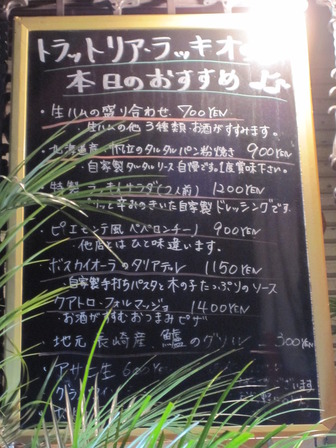 トラットリア・ラッキオ
本日のおすすめ
・生ハムの盛り合わせ 700YEN
・生ハムの他 3種類・お酒がすすみます。
・北海道産 帆立のタルタルパン粉焼き 900YEN
・自家製タルタルソース自慢です。1度賞味下さい。
・特製 ラッキオサラダ(2人前) 1200YEN
ピリッと辛みのきいた自家製ドレッシングです。
・ピエモンテ風 ペペロンチーノ 900YEN
・他店とはひと味違います。
・ボスカイオーラのタリアテレ 1150YEN
・自家製手打ちパスタと木の子たっぷりのソース
・クアトロ・フォルマッジョ 1400YEN
・お酒がすすむおつまみピザ
・地元 長崎産 鱸のグリル 300YEN
アサヒ生 YEN
グラ